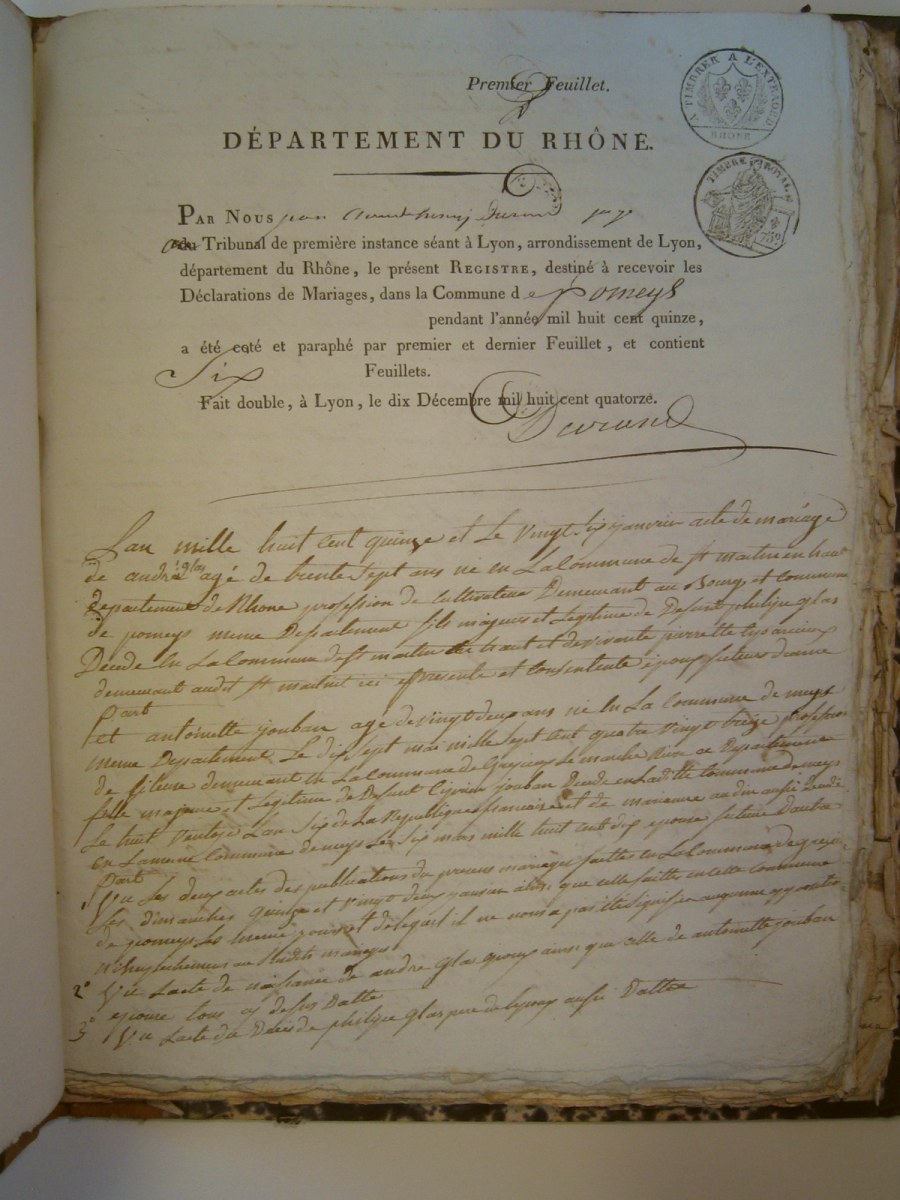 Premier Feuillet.
A TIMBRER A L'EXTRAORD
RHONE
DÉPARTEMENT DU RHÔNE.
TIMBRE ROYAL
PAR NOUS jean Durand juge
Tribunal de première instance séant à Lyon, arrondissement de Lyon,
département du Rhône, le présent REGISTRE, destiné à recevoir les
Déclarations de Mariages, dans la Commune de pomeys
pendant l'année mil huit cent quinze,
a été coté et paraphé par premier et dernier Feuillet, et contient
Six Feuillets.
Fait double, à Lyon, le dix Décembre mil huit cent quatorze.
Durand
Lan mille huit cent quinze et Le vingt six janvier acte de mariage
de andré glas agé de trente sept ans né en La Commune de st martin en haut
Departement de Rhone profession de cultivateur Demeurant au Bourg et commune
de pomeys meme Departement fils majeur et Legitime de Defunt philipe glas
Décédé en La Commune de st martin en haut et de vivante pierrette
demeurant audit st martin ici presente et consentente époux futeurs dune
part
et antoinette jouban age de vingt deux ans né en La Commune de meys
meme Departement Le dix sept mai mille sept cent quatre vingt treize profession
de fileuse demeurant en La Commune de Le marché Rive ce Departement
fille majeure et Legitime de Defunt jouban Décédé en Ladite Commune de meys
Le huit L'an Six de La Republique francaise et de marianne audin aussi Décédé
en La meme Commune de meys Le Six mars mille huit cent dix epouse future Dautre
part
1 Vu Les deux actes des publications du present mariage faittes en La Commune de
Les dimanches quinze et vingt deux janvier ainsi que celle faitte en cette Commune
de pomeys Les meme jours et il ne nous a pas été signifier aucune
mariage
2° Vu Lacte de naissance de andre glas epoux ainsi que celle de antoinette jouban
epouse tous cy dessus Datté
3° Vu Lacte du Dáces de philipe glas pere de Lepoux aussi Datté